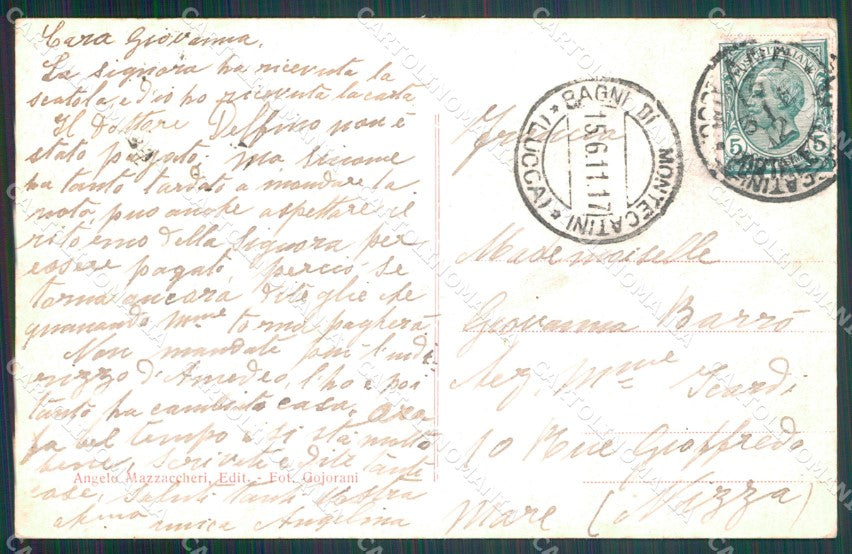 Cara Giovanna.
La Signora ha ricevuta la
scatola, ed io ho ricevuta la carta
Il Dottore Delfino non è
stato pagato. ma siccome
ha tanto tardato a mandare la
nota, può anche aspettare il
ritorno della Signora per
essere pagato, perciò, se
torna ancora dite glie che
quanando Mme torna pagherà
Non mandate più l'indi
rizzo d'Amedeo, l'ho e poi
tanto ha cambiato casa. Ora
fa bel tempo e si sta molto
bene, scrivete e dite tante
cose, saluti tanti vostra
amica Angelina
Angelo Mazzaccheri, Edit. - Fot. Gojorani
BAGNI DI MONTECATINI
* (LUCCA) *
15.6.11.17
5 5
Mademoiselle
Giovanna Barró
Mme Icardi
10 Rue Gioffredo
Mare (Nizza)
CARTOLINOMANIA